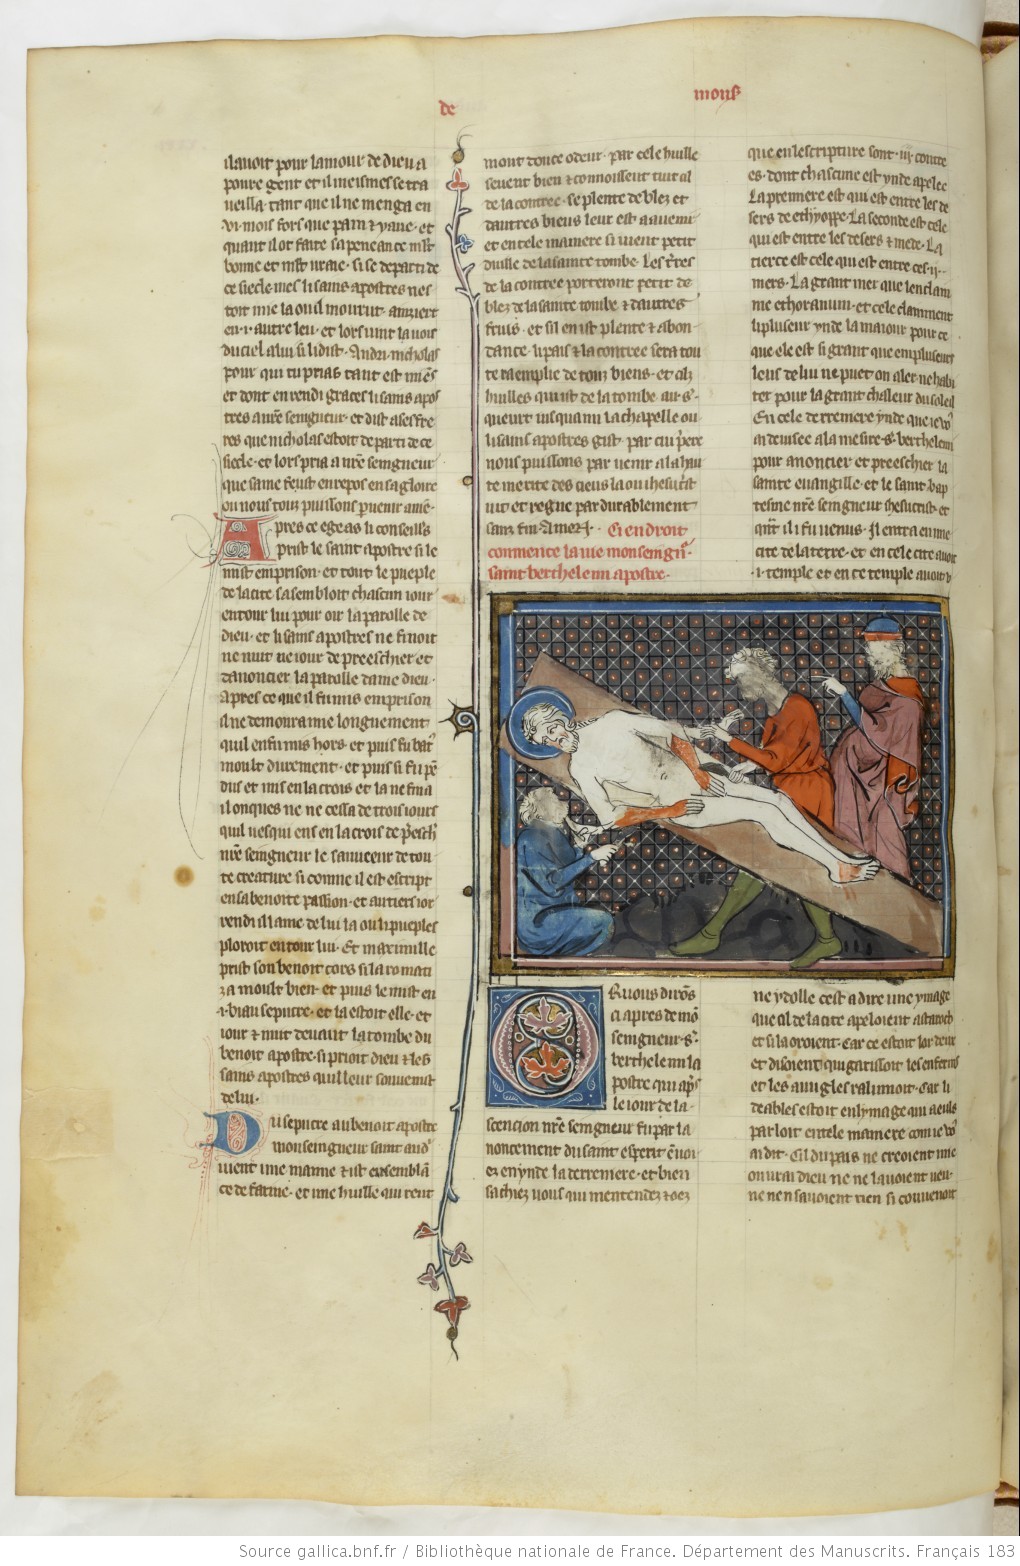 de mons̾
il auoit pour lamour de dieu a
poure gent et il meismes se tra
ueilla tant que il ne menga en
.vi. mois fors que pain et yaue. et
quant il ot faite sa peneance mlt
bonne et mlt uraie. si se departi de
ce siecle. mes li sains apostres nes
toit mie la ou il mourut. aincziert
en .i. autre leu. et lors uint la uois
du ciel a lui si li dist. Andri. nicholas
pour qui tu prias tant est miens
et dont en rendi graces li sains apos
tres a nre seigneur. et dist a ses fre
res que nicholas estoit departi de ce
siecle. et lors pria a nre seigneur
que same feust en repos en sa gloire
ou nous touz puissons puenir amen.
Apres ce egeas li conseilliers
prist le saint apostre si le
mist emprison. et tout le pueple
de la cite sasembloit chascun iour
entour lui pour oir la parolle de
dieu. et li sains apostres ne finoit
ne nuit ne iour de preeschier et
danoncier la parolle dame dieu.
apres ce que il fu mis emprison
il ne demoura mie longuement
quil en fu mis hors. et puis fu batu
moult durement. et puis si fu pen
dus et mis en la crois et la ne fina
il onques ne ne cessa de trois iours
quil uesqui ens en la crois de preesch
nre seigneur le sauueur de tou
te creature si comme il est escript
en sa benoite passion. et au tiers ior
rendi il lame de lui la ou li pueples
plouroit entour lui. Et maximille
prist son benoit cors si la romati
za moult bien. et puis le mist en
.i. biau sepucre. et la estoit elle. et
iour et nuit deuant la tombe du
benoit apostre. si prioit dieu et les
sains apostres quil leur souuenist
de lui.
Du sepucre au benoit apostre
monseigneur saint audri
uient une manne et ist ensemblan
ce de farine. et une huille qui rent
mout douce odeur. par cele huille
seuent bien et connoissent tuit cil
de la contree. se plente de blez et
dautres biens leur est a auenir
et en tele maniere si uient petit
duille de la sainte tombe. Les terres
de la contree porteront petit de
blez de la sainte tombe et dautres
fruis. et sil en ist plente et abon
dance. li pais et la contree sera tou
te raemplie de touz biens. et celz
huilles qui ist de la tombe au .s.
queurt iusqua mi la chapelle ou
li sains apostres gist. par cui priere
nous puissons paruenir a la hau
te merite des cieus la ou ihesucrist
uit et regne pardurablement
sanz fin. Amen. Ci endroit
commence la uie monseign.
saint berthelemi apostre.
Or uous dirons
ci apres de mon
seigneur .s.
berthelemi la
postre qui aps
le iour de la
scencion nre seigneur fu par la
noncement du saint esperit enuoi
ez en ynde la derreniere. et bien
sachiez uous qui mentendez et oez
que en lescripture sont .iij. contre
es. dont chascune est ynde apelee
La premiere est qui est entre les de
sers de ethyoppe. La seconde est cele
qui est entre les desers et mede. La
tierce est cele qui est entre ces .ij.
mers. La grant mer que len claim
me ethoranum. et cele claimment
li pluseur ynde la maiour pour ce
que ele est si grant que em pluseurs
leus de lui ne puet on aler ne habi
ter pour la grant chaleur du soleil
En cele derreniere ynde que ie uos
ai deuisee ala mesire .s. berthelemi
pour anoncier et preeschier la
sainte euuangille et le saint bap
tesme nre seigneur ihesucrist. et
qnt il i fu uenus. Il entra en une
cite de la terre. et en cele cite auoit
.i. temple et en ce temple auoit v
ne ydolle cest a dire une ymage
que cil de la cite apeloient astaroth
et si laouroient. Car ce estoit lor dieu
et disoient qui garissoit les enfermes
et les auugles ralumoit. Car li
deables estoit en lymage qui a eulz
parloit en tele maniere com ie uos
ai dit. Cil du pais ne creoient mie
ou urai dieu ne ne lauoient ueu.
ne nen sauoient rien si couuenoit
Source gallica.bnf.fr / Bibliothèque nationale de France. Département des Manuscrits. Français 183